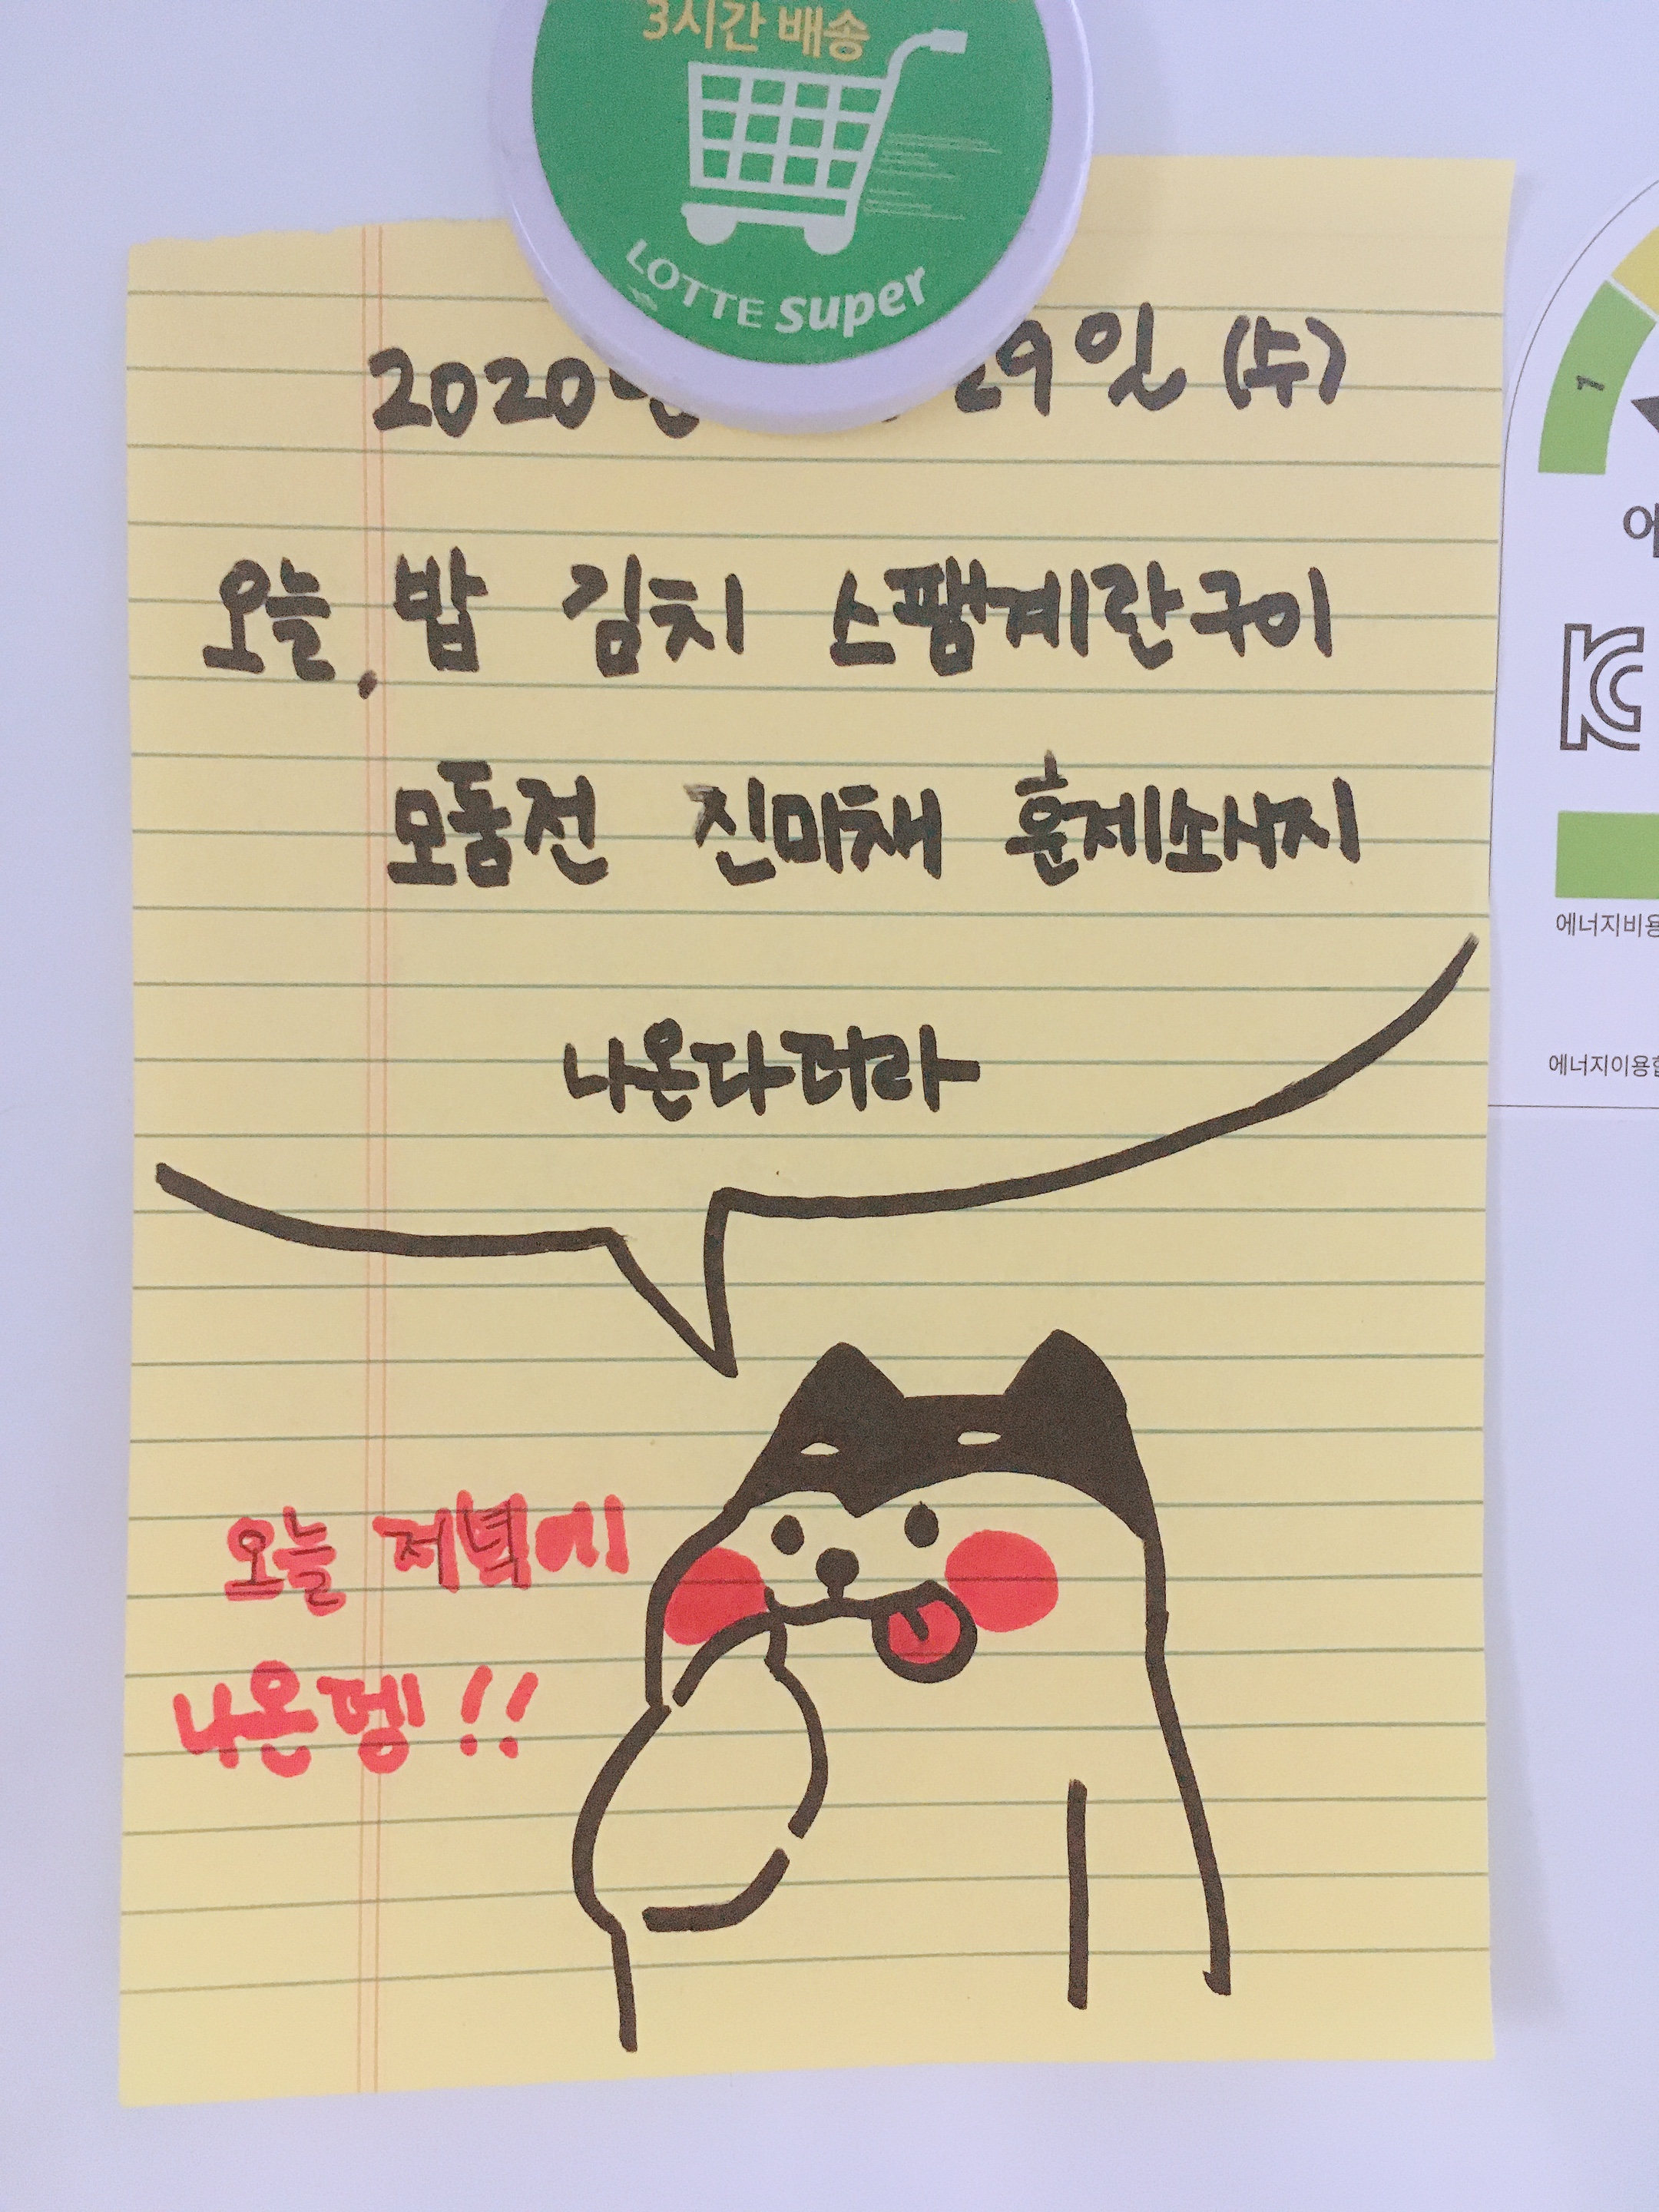 3시간 배송
LOTTE super
2020년 29일 (수)
오늘, 밥 김치 스팸계란구이
모둠전 진미채 훈제소시지
나온다더라
오늘 저녁에
나온뎅!!
1
에너지비용
에너지이용합